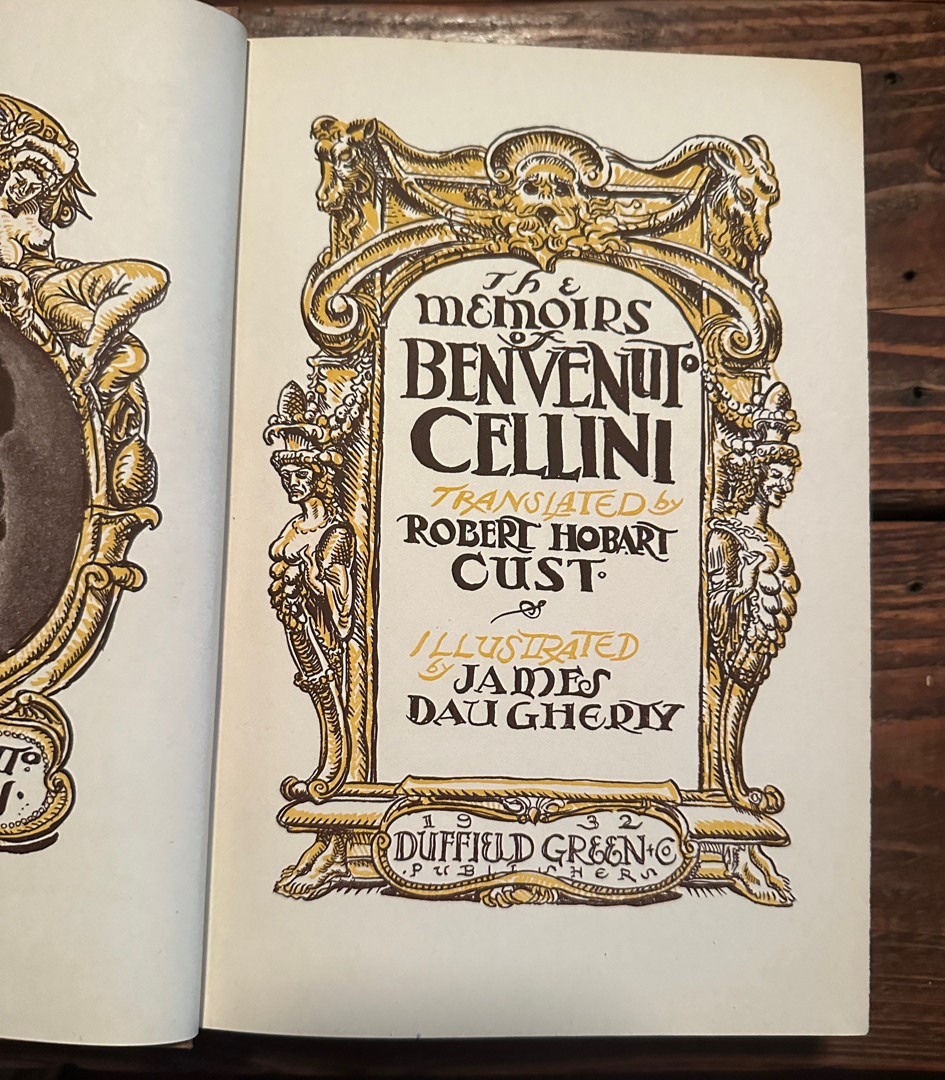 The
MEMOIRS
of
BENVENUTO
CELLINI
TRANSLATED by
ROBERT HOBART
CUST.
ILLUSTRATED
by JAMES
DAUGHERTY
1932
DUFFIELD GREEN + Co
. PUBLISHERS